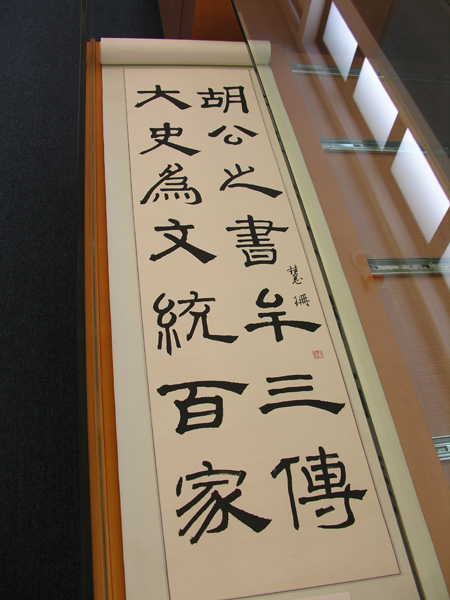 胡公之書牟三傳
大史為文統百家
慧珊